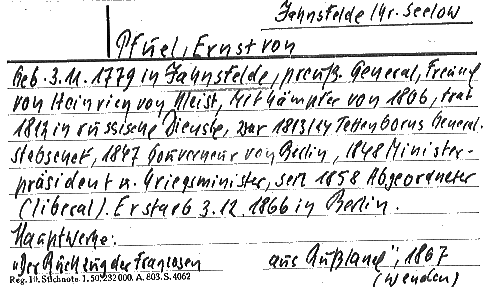 Jahnsfelde/Kr. Seelow
Pfuel, Ernst von
Geb. 3.11.1779 in Jahnsfelde, preuß. General, Freund
von Heinrich von Kleist, Mitkämpfer von 1806, trat
1812 in russische Dienste, war 1813/14 Tettenborns General-
stabschef, 1847 Gouverneur von Berlin, 1848 Minister-
präsident u. Kriegsminister, seit 1858 Abgeordneter
(liberal). Er starb 3.12.1866 in Berlin.
Hauptwerke:
"Der Rückzug der Franzosen aus Rußland", 1867
(Wenden)
Reg. 10. Stichnote. 1. 50. 232 000. A. 803. S. 4062